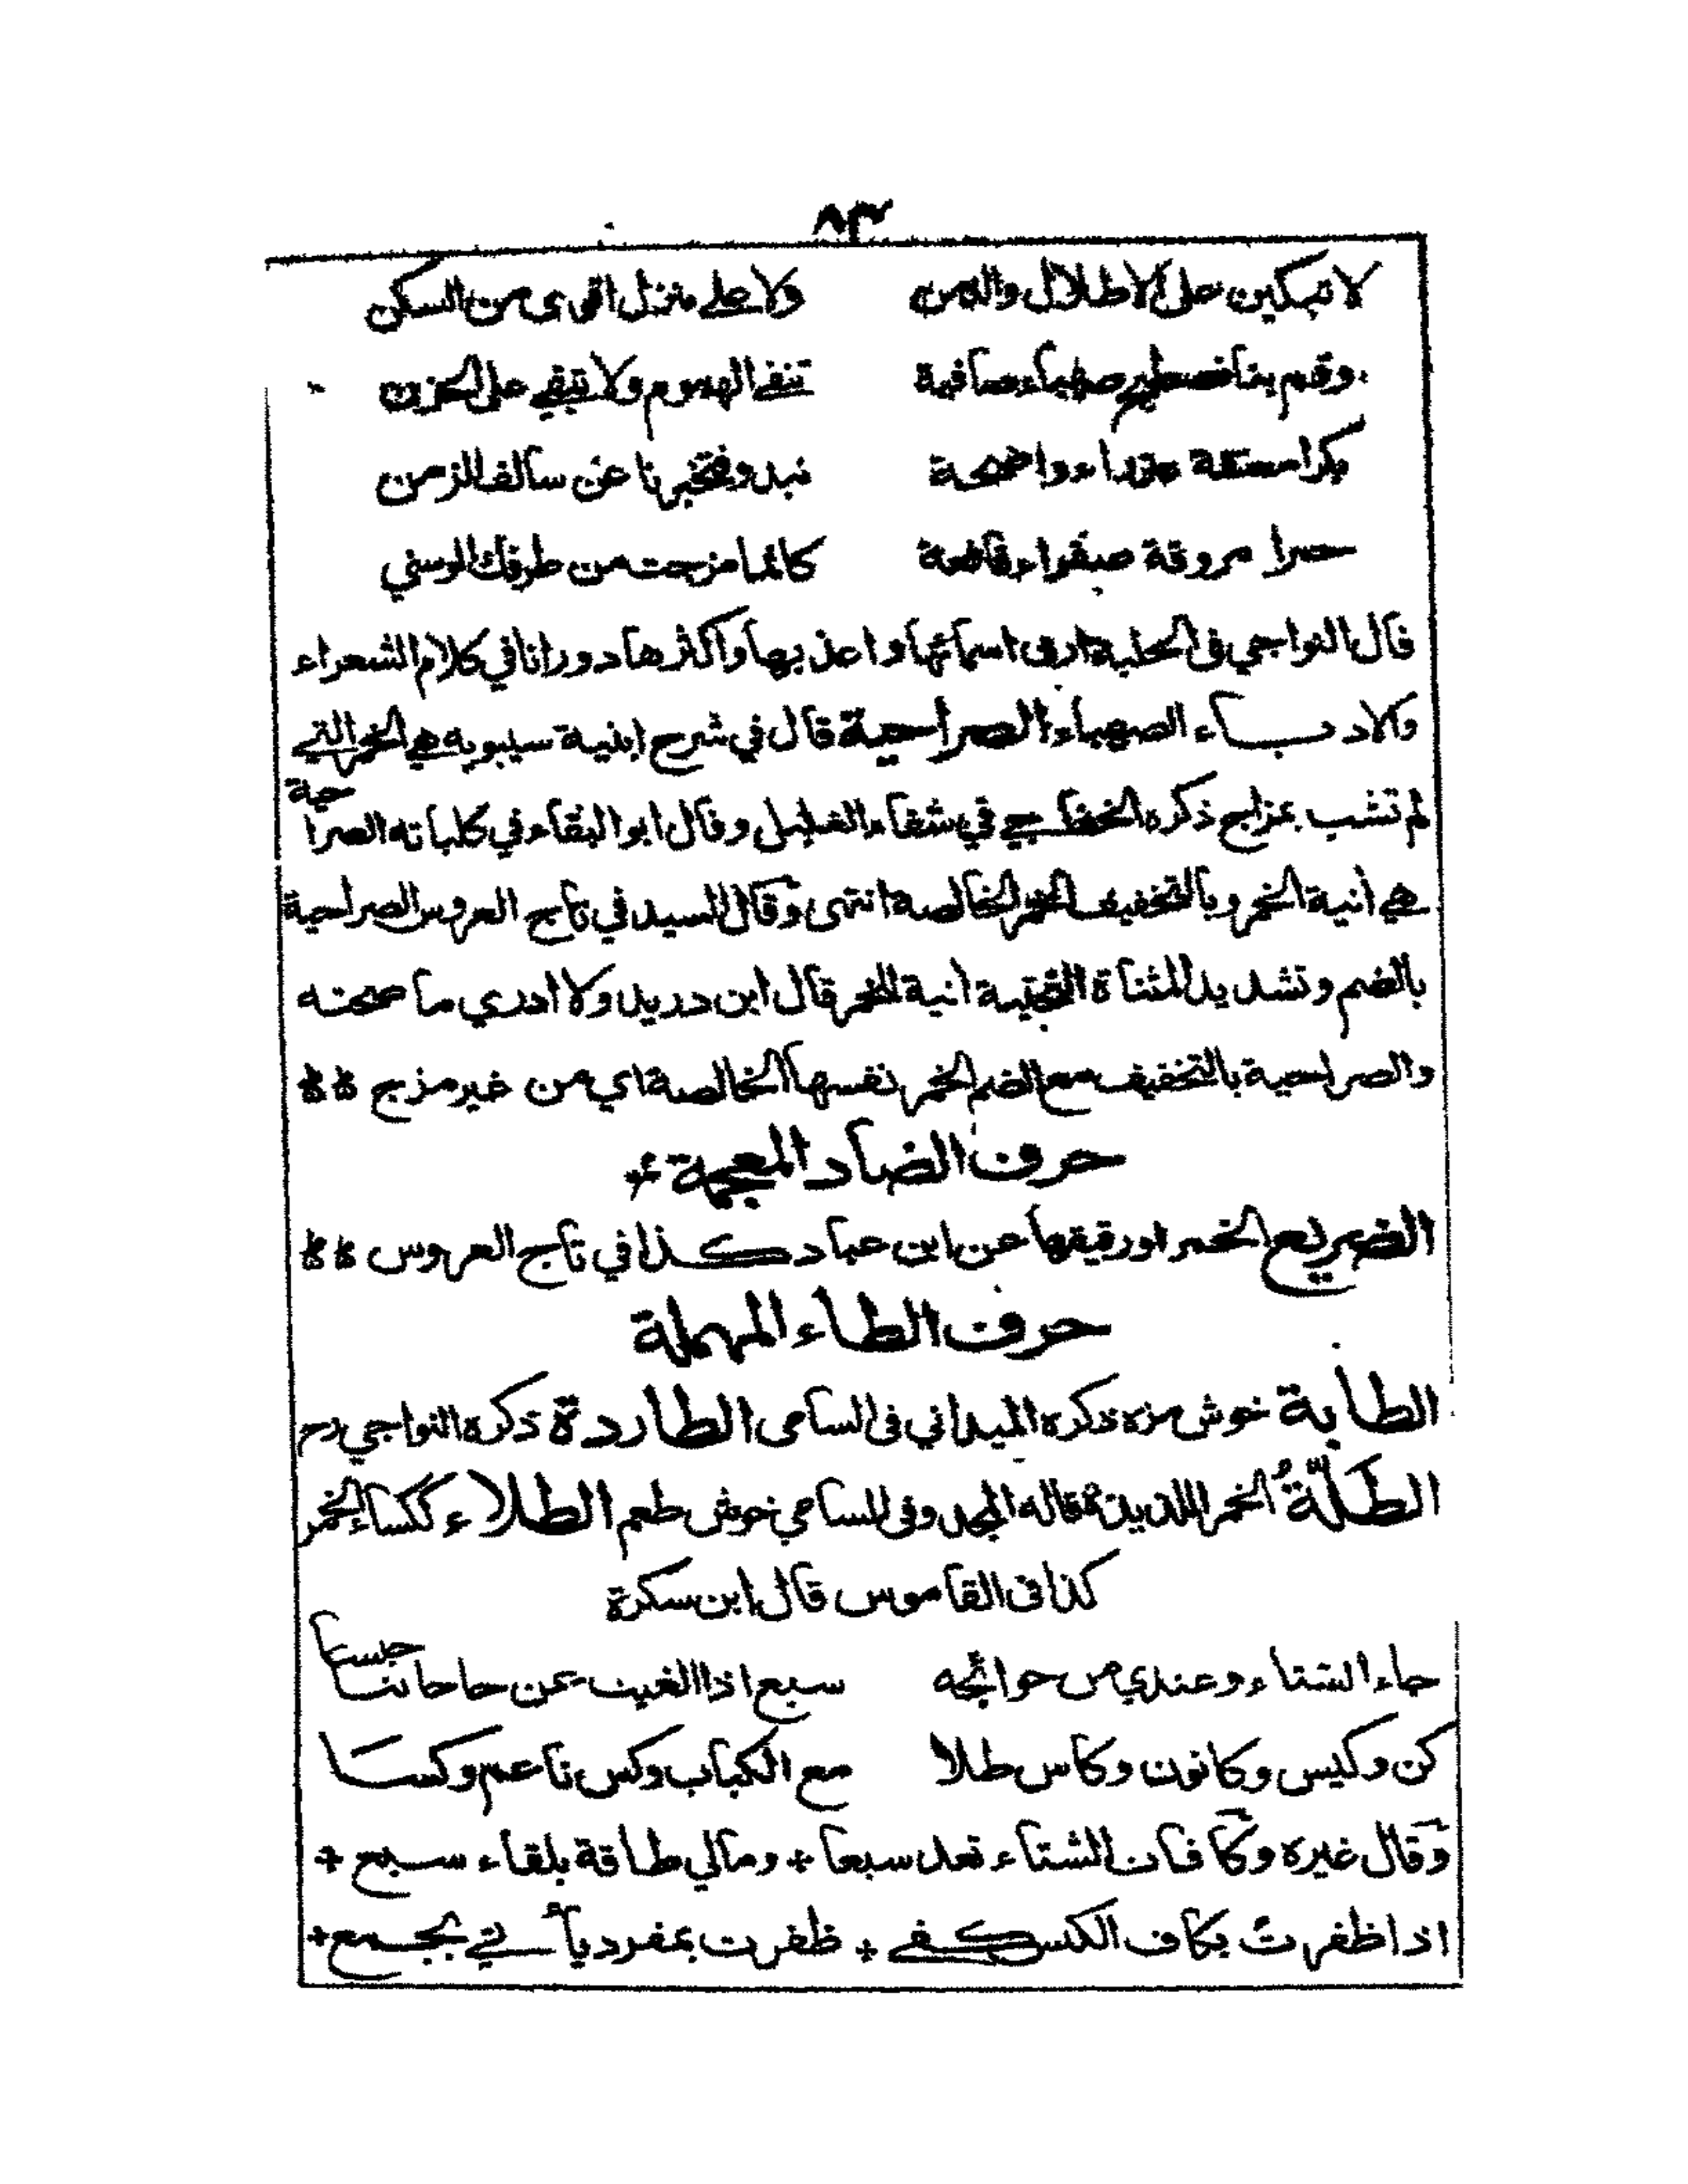 ٨٣
لا تبكين على الاطلال والدمن ولا على منزل اقوى من السكن
وقم بنا نصطبح صهباء صافية تنفي الهموم ولا تبقي على الحزن
بكرا معتقة عذراء واضحة تبدو فتخبرنا عن سالف الزمن
حمرا مروقة صفراء فاقعة كانما مزجت من طرفك الوسني
قال النواجي في الحلبة ارق اسمائها واعذبها واكثرها دورانا في كلام الشعراء
والادباء الصهباء الصراحية قال في شرح ابنية سيبويه هي الخمر التي
لم تشب بمزاج ذكره الخفاجي في شفاء الغليل وقال ابو البقاء في كلياته الصراحية
هي انية الخمر وبالتخفيف الخمر الخالصة انتهى وقال السيد في تاج العروس الصراحية
بالضم وتشديد المثناة التحتية انية للخمر قال ابن دريد ولا ادري ما صحته
والصراحية بالتخفيف مع الضم الخمر نفسها الخالصة اي من غير مزج
حرف الضاد المعجمة
الضريع الخمر او رقيقها عن ابن عباد كذا في تاج العروس
حرف الطاء المهملة
الطابة خوش مزه ذكره الميداني في السامى الطاردة ذكره النواجي رح
الطَّلَّةُ الخمر اللذيذة قاله المجد وفي السامي خوش طعم الطلاء ككساء الخمر
كذا في القاموس قال ابن سكرة
جاء الشتاء وعندي من حوائجه سبع اذا الغيث عن حاجاتنا حبسا
كن وكيس وكانون وكاس طلا مع الكباب وكس ناعم وكسا
وقال غيره وكافات الشتاء تعد سبعا + ومالي طاقة بلقاء سبع +
اذا ظفرت بكاف الكس كفي + ظفرت بمفرد يأتي بجمع +